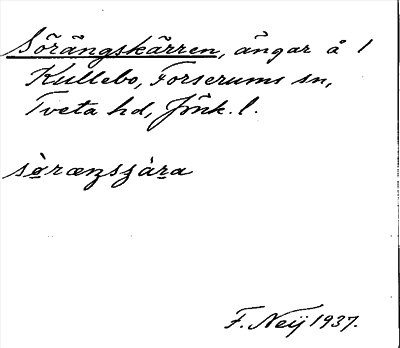 Sörängskärren, ängar å 1
Kullebo, Forserums sn,
Tveta hd, Jönk. l.
F. Neij 1937.